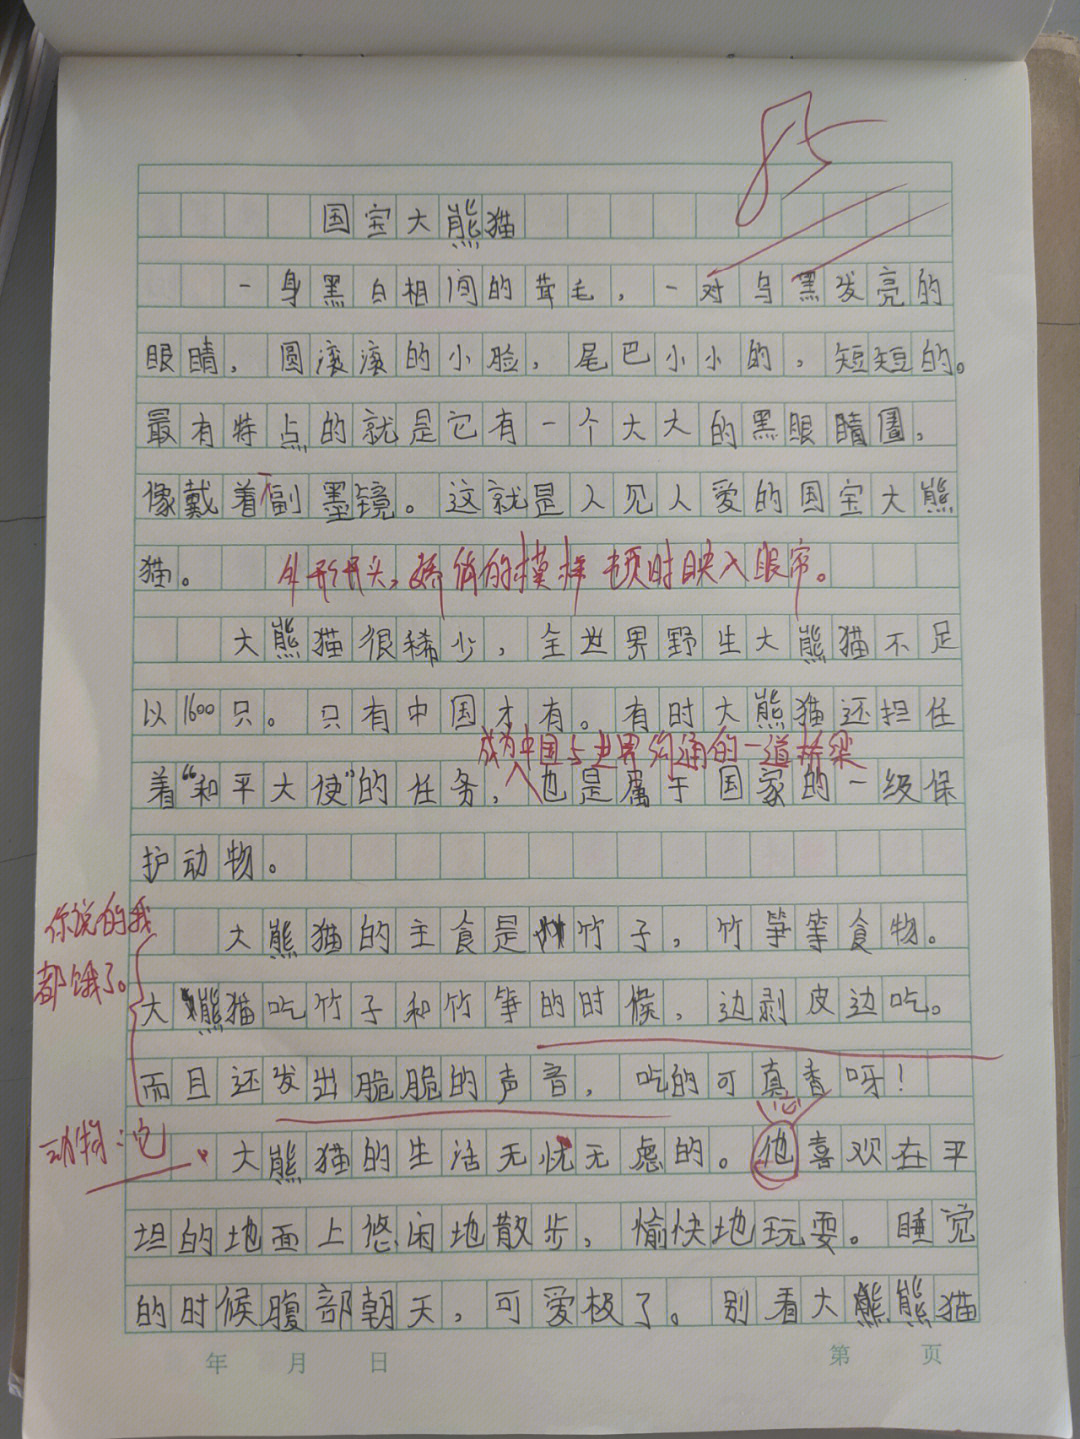 85
国宝大熊猫
一身黑白相间的茸毛，一对乌黑发亮的
眼睛，圆滚滚的小脸，尾巴小小的，短短的。
最有特点的就是它有一个大大的黑眼睛圈，
像戴着一副墨镜。这就是人见人爱的国宝大熊
猫。 外形开头，娇俏的模样顿时映入眼帘。
大熊猫很稀少，全世界野生大熊猫不足
以1600只。只有中国才有。有时大熊猫还担任
成为中国与世界沟通的一道桥梁
着“和平大使”的任务，也是属于国家的一级保
护动物。
你说的我
都饿了。
大熊猫的主食是竹子，竹笋等食物。
大熊猫吃竹子和竹笋的时候，边剥皮边吃。
而且还发出脆脆的声音，吃的可真香呀！
动物：它
大熊猫的生活无忧无虑的。他喜欢在平
坦的地面上悠闲地散步，愉快地玩耍。睡觉
的时候腹部朝天，可爱极了。别看大熊熊猫
年 月 日
第 页